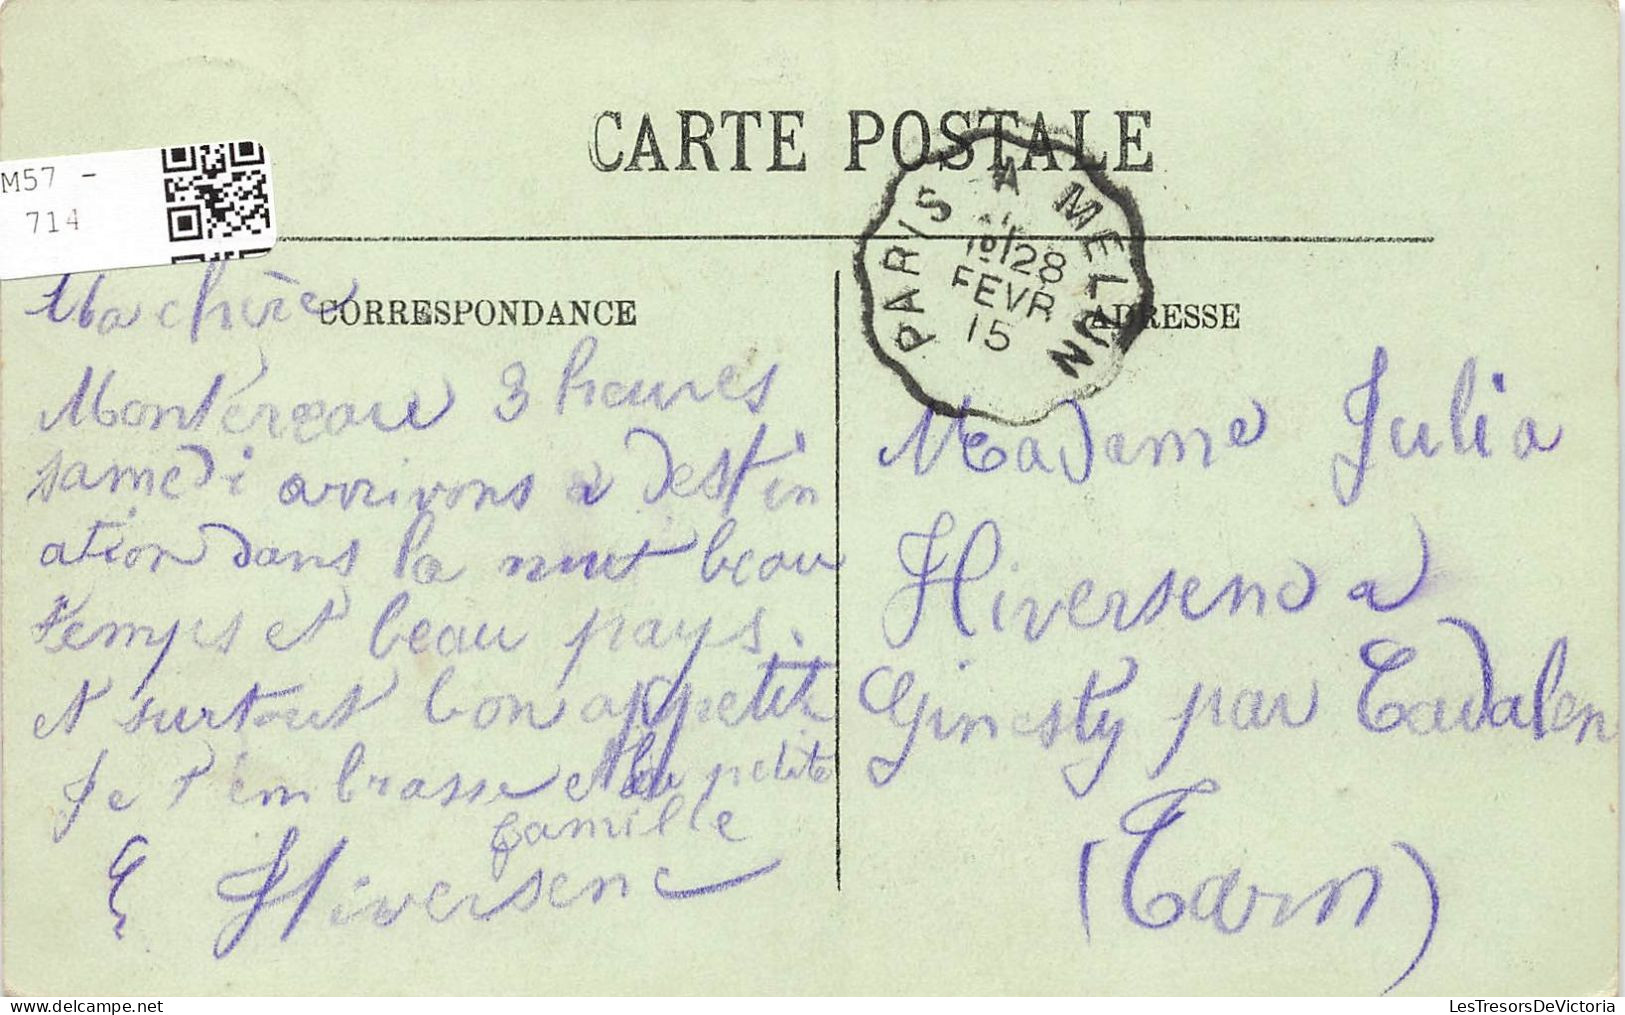 CARTE POSTALE
M57 -
714
PARIS A MELUN
1º/28
FEVR
15
CORRESPONDANCE
Ma chère
Montereau 3 heures
samedi arrivons a destin
ation dans la nuit beau
temps et beau pays.
et surtout bon appetit
Je t'embrasse et la petite
famille
E Hiversenc
ADRESSE
Madame Julia
Hiversenc a
Ginesty par Cadalen
(Tarn)
LesTresorsDeVictoria